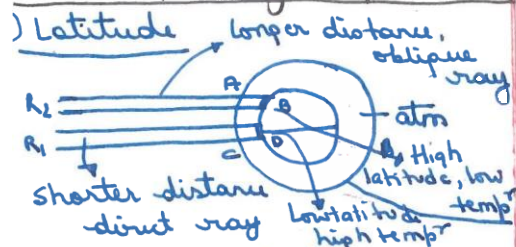 ) Latitude
longer distane,
oblique
ray
A
R2
B
atm
R1
C
D
High
latitude, low
tempr
shorter distane
direct ray
Lowlatitude
high tempr